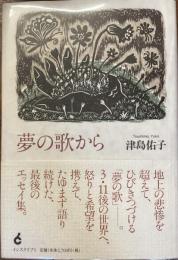 夢の歌から
津島佑子
Tsushima Yuko
地上の悲惨を
超えて、
ひびきつづける
「夢の歌」――。
3・11後の世界へ、
怒りと希望を
携えて、
たゆまず語り
続けた、
最後の
エッセイ集。
インスクリプト